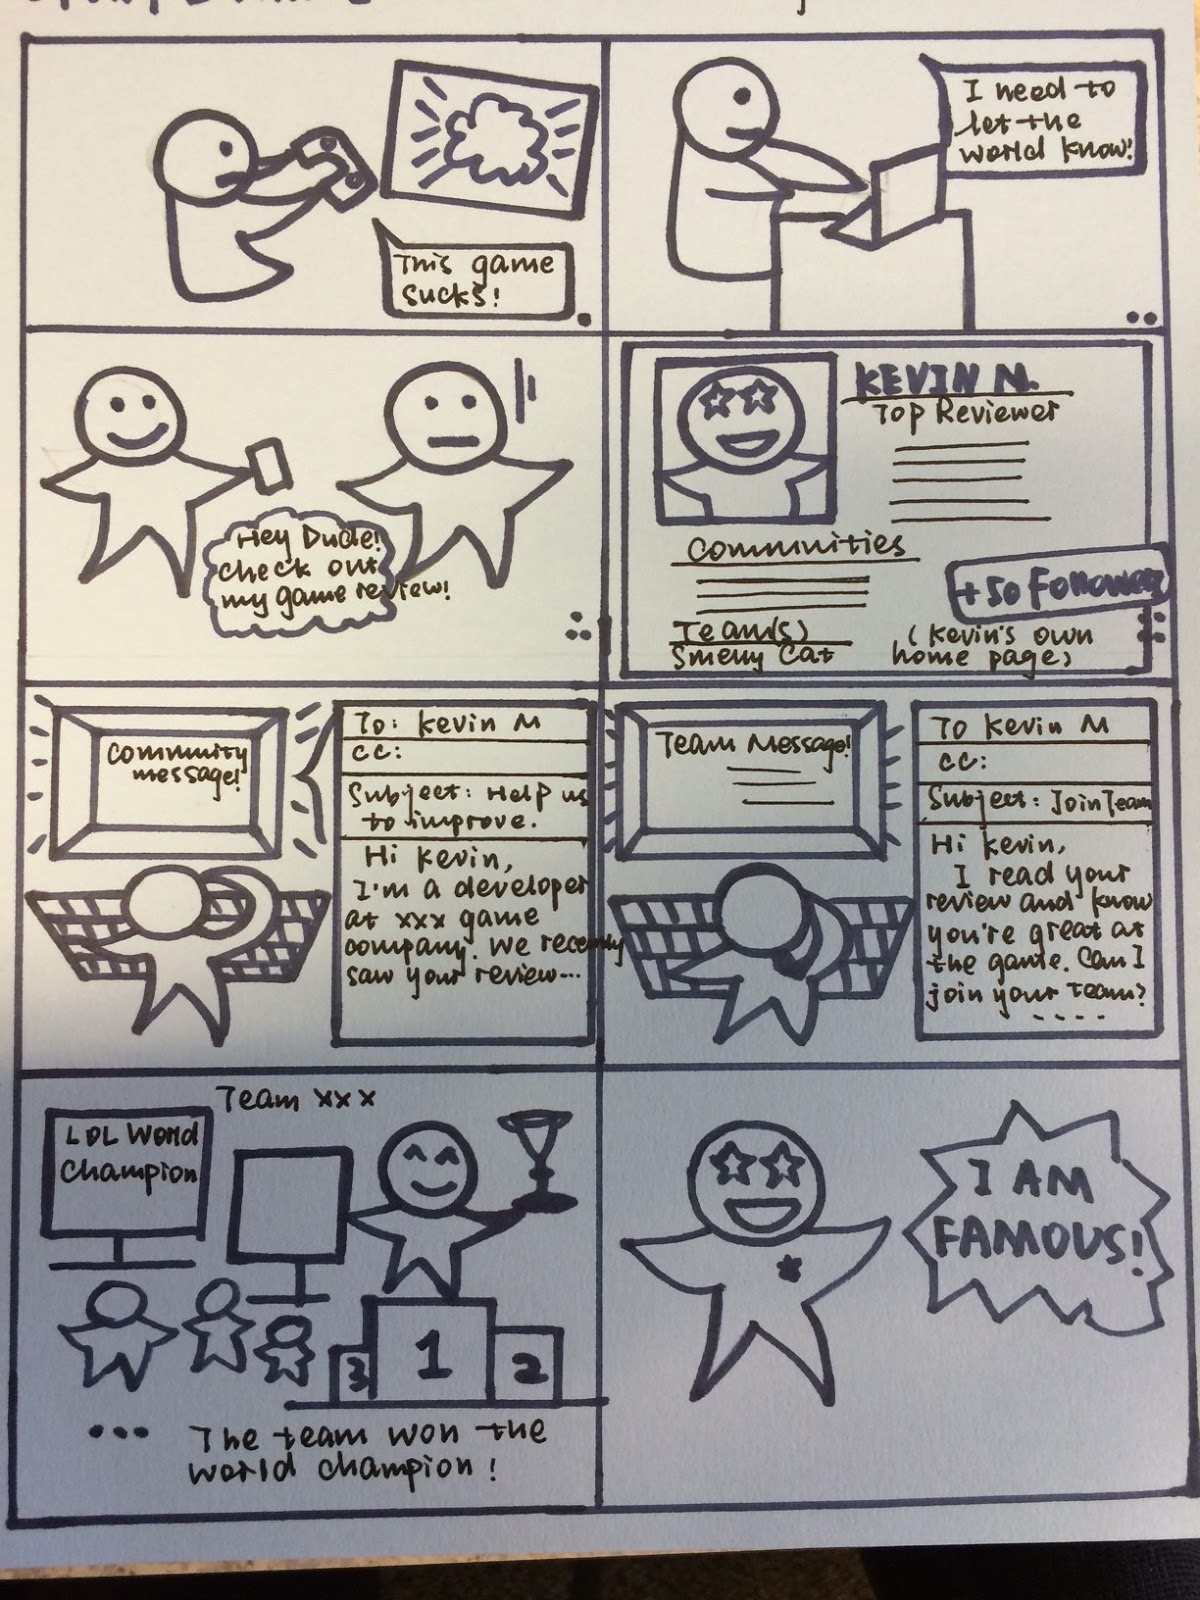 This game
sucks!
I need to
let the
world know!
Hey Dude!
check out
my game review!
KEVIN M.
Top Reviewer
Communities
+50 Followers
Team(s)
Smelly Cat
(Kevin's own
home page)
Community
message!
To: Kevin M
CC:
Subject: Help us
to improve.
Hi Kevin,
I'm a developer
at xxx game
company. We recently
saw your review...
Team Message!
To Kevin M
CC:
Subject: Join Team
Hi Kevin,
I read your
review and know
you're great at
the game. Can I
join your team?
....
Team xxx
LOL World
Champion
3 1 2
... The team won the
world champion!
I AM
FAMOUS!